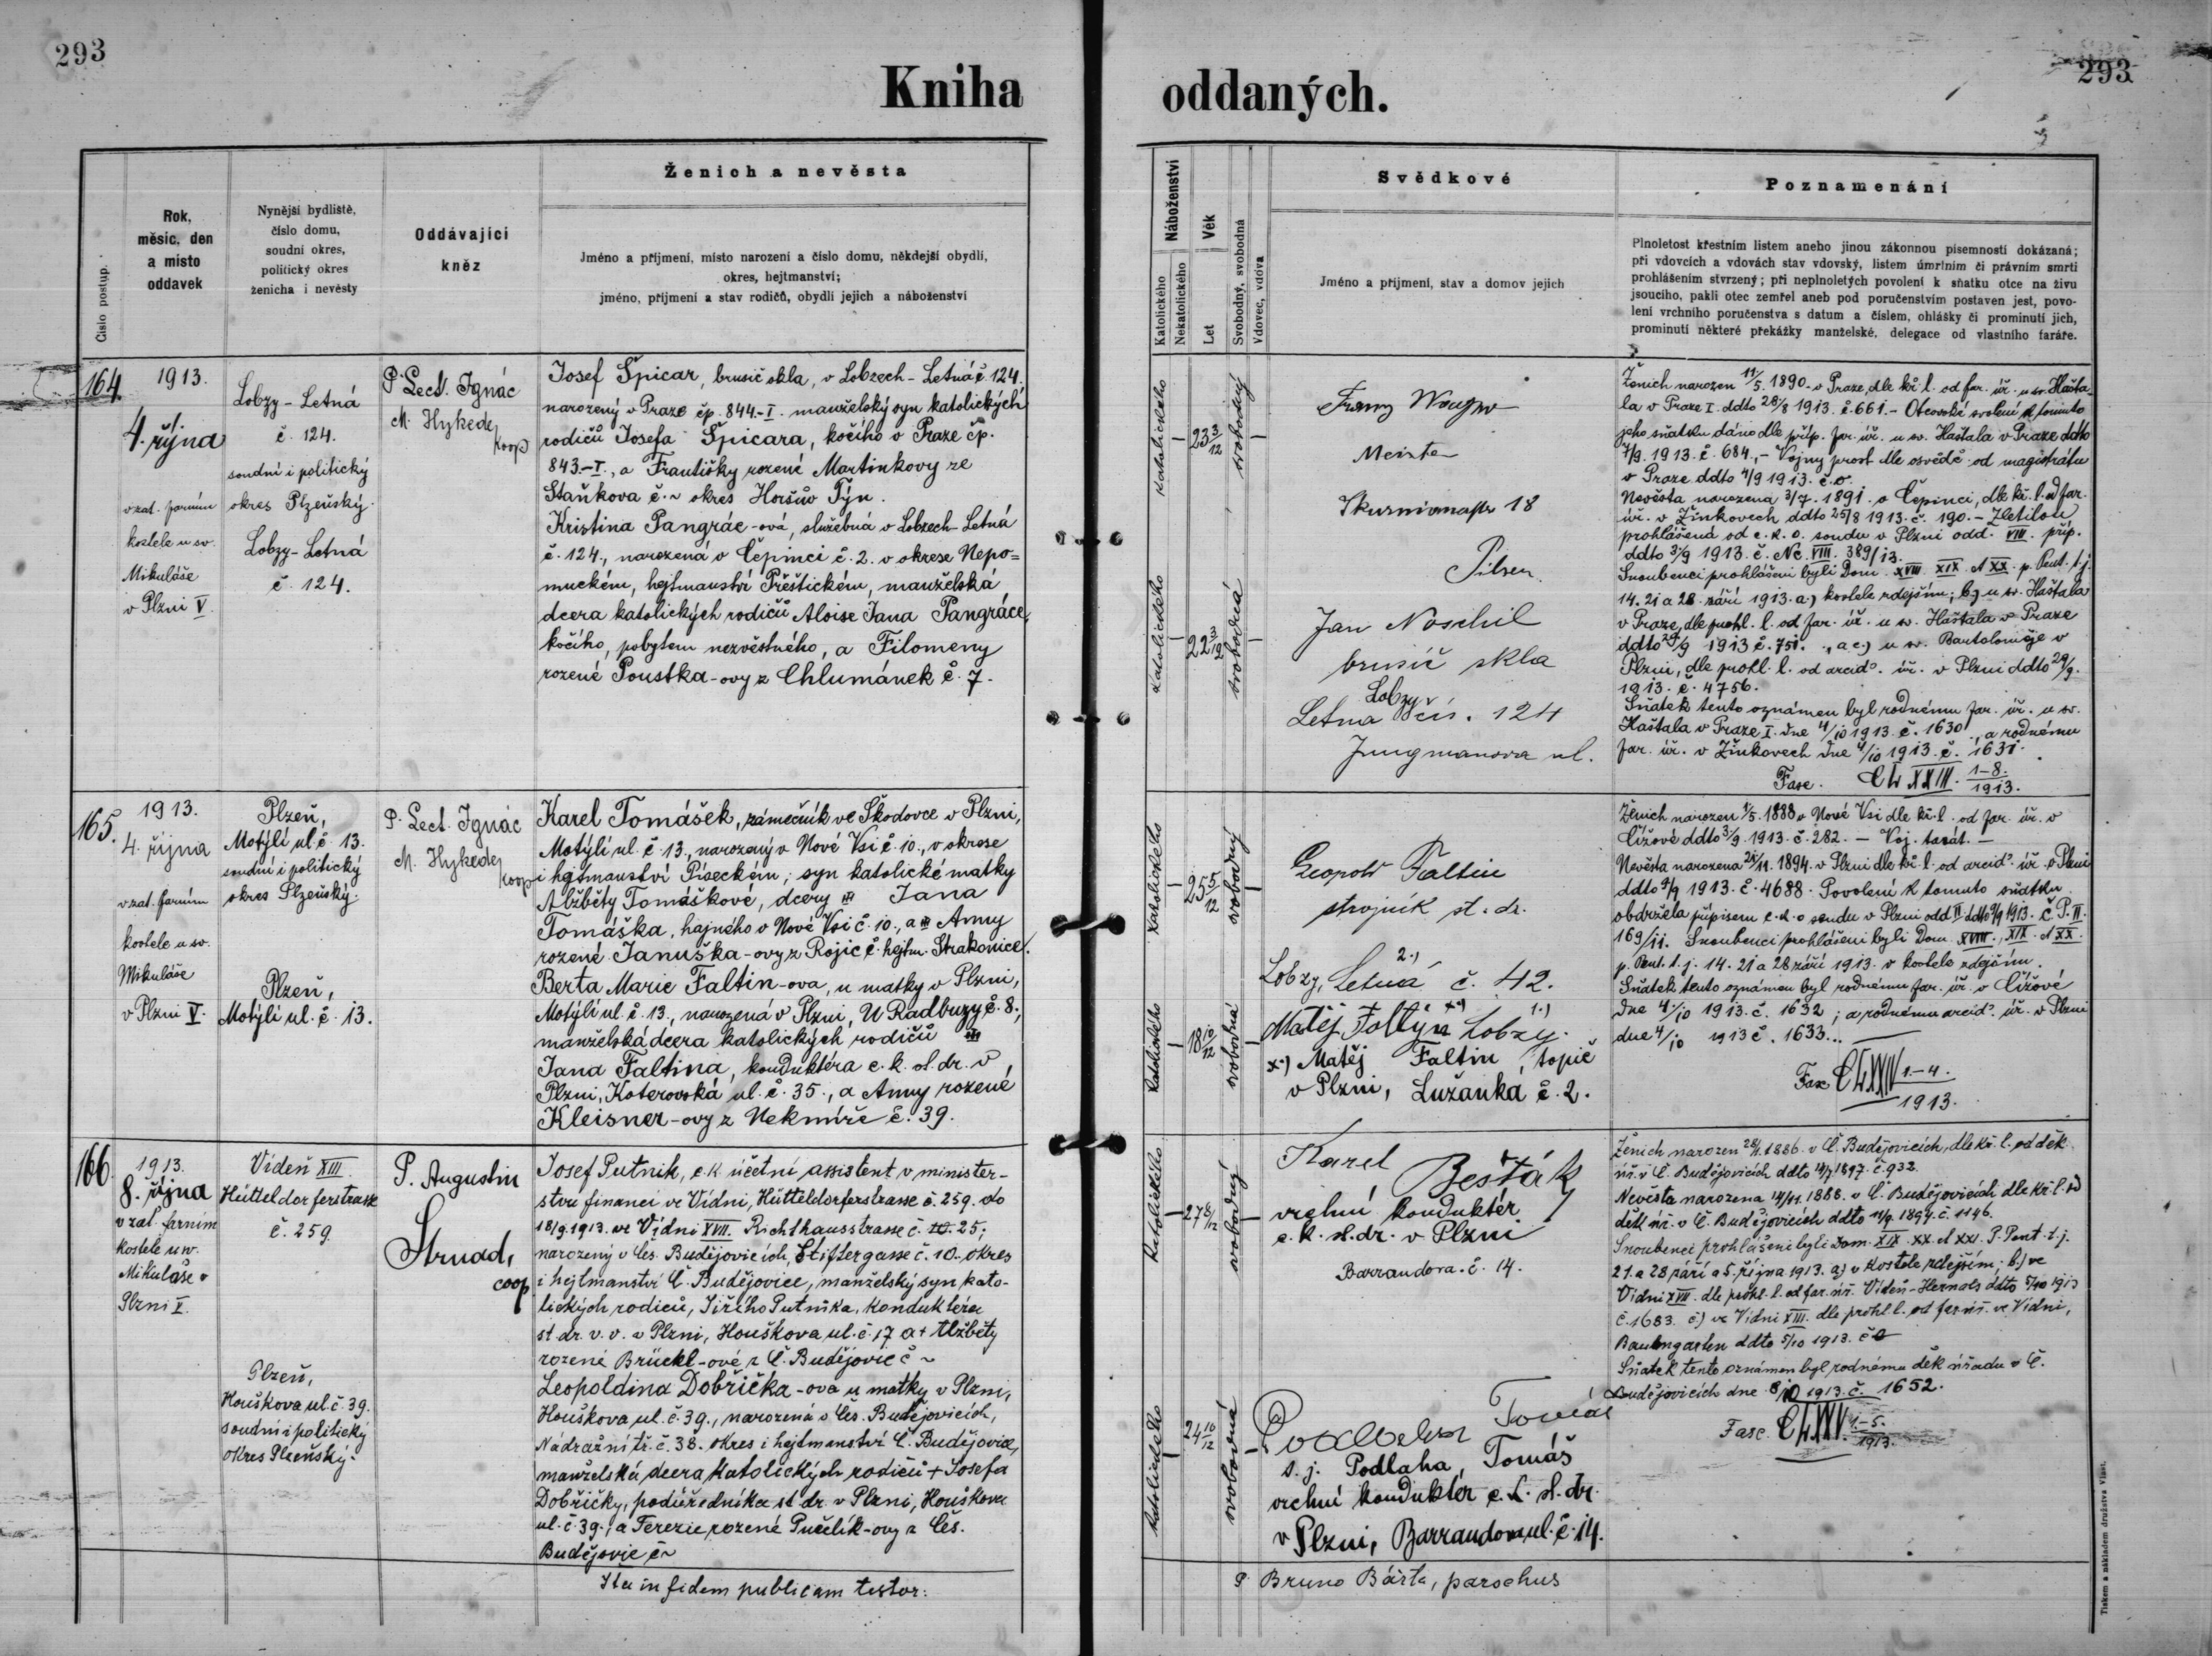 293
293
Kniha oddaných.
Číslo postup.
Rok,
měsíc, den
a místo
oddavek
Nynější bydliště,
číslo domu,
soudní okres,
politický okres
ženicha i nevěsty
Oddávající
kněz
Ženich a nevěsta
Jméno a příjmení, místo narození a číslo domu, někdejší obydlí,
okres, hejtmanství;
jméno, příjmení a stav rodičů, obydlí jejich a náboženství
Náboženství
Katolického
Nekatolického
Věk
Let
Svobodný, svobodná
Vdovec, vdova
Svědkové
Jméno a příjmení, stav a domov jejich
Poznamenání
Plnoletost křestním listem aneb jinou zákonnou písemností dokázaná;
při vdovcích a vdovách stav vdovský, listem úmrtním či právním smrti
prohlášením stvrzený; při neplnoletých povolení k sňatku otce na živu
jsoucího, pakli otec zemřel aneb pod poručenstvím postaven jest, povo-
lení vrchního poručenstva s datum a číslem, ohlášky či prominutí jich,
prominutí některé překážky manželské, delegace od vlastního faráře.
164.
1913.
4. října
v zat. farním
kostele u sv.
Mikuláše
v Plzni V
Lobzy-Letná
č. 124.
soudní i politický
okres Plzeňský.
Lobzy-Letná
č. 124.
P. Lect. Ignác
M. Hykede
koop
Josef Špicar, brusič skla, v Lobzech-Letná č. 124.
narozený v Praze čp. 844.-I. manželský syn katolických
rodičů Josefa Špicara, kočího v Praze čp.
843.-I., a Františky rozené Martinkovy ze
Staňkova č. ~ okres Horšův Týn.
Kristina Pangrác-ová, služebná v Lobzech-Letná
č. 124., narozená v Čepinci č. 2. v okrese Nepo=
muckém, hejtmanství Přeštickém, manželská
dcera katolických rodičů Aloise Jana Pangráce,
kočího, pobytem nezvěstného, a Filomeny
rozené Poustka-ovy z Chlumánek č. 7.
katolického
23 3/12
svobodný
katolického
22 3/12
svobodná
Franz
Meister
18
Pilsen.
Jan Noschil
brusič skla
Lobzy
Letna čís. 124
Jungmanova ul.
Ženich narozen 11/5. 1890. v Praze, dle kř. l. od far. úř. u sv. Hašta-
la v Praze I. ddto 28/8 1913. č. 661. - Otcovské svolení k tomuto
jeho sňatku dáno dle příp. far. úř. u sv. Haštala v Praze ddto
7/9. 1913. č. 684., - Vojny prost dle osvědč. od magistrátu
v Praze ddto 4/9 1913. č. 0.
Nevěsta narozena 3/7. 1891. v Čepinci, dle kř. l. od far.
úř. v Žinkovech ddto 25/8 1913. č. 190. - Zletilou
prohlášená od c. k. o. soudu v Plzni odd. VIII. příp.
ddto 3/9 1913. č. Nc. VIII. 389/13.
Snoubenci prohlášeni byli Dom. XVIII. XIX. et XX. p. Pent. t. j.
14. 21 a 28. září 1913. a.) kostele zdejším; b.) u sv. Haštala
v Praze, dle prohl. l. od far. úř. u sv. Haštala v Praze
ddto 1913 č. 751. , a c.) u sv. Bartoloměje v
Plzni, dle prohl. l. od arcid. úř. v Plzni ddto 29/9.
1913. č. 4756.
Sňatek tento oznámen byl rodnému far. úř. u sv.
Haštala v Praze I. dne 4/10 1913. č. 1630., a rodnému
far. úř. v Žinkovech dne 4/10 1913. č. 1631.
Fasc. CLXXIII. 1-8.
1913.
165.
1913.
4. října
v zat. farním
kostele u sv.
Mikuláše
v Plzni V.
Plzeň,
Motýlí ul. č. 13.
soudní i politický
okres Plzeňský.
Plzeň,
Motýlí ul. č. 13.
P. Lect. Ignác
M. Hykede
koop
Karel Tomášek, zámečník ve Škodovce v Plzni,
Motýlí ul. č. 13., narozený v Nové Vsi č. 10., v okrese
i hejtmanství Píseckém; syn katolické matky
Alžběty Tomáškové, dcery Jana
Tomáška, hajného v Nové Vsi č. 10., a Anny
rozené Januška-ovy z Rojic č. hejtm. Strakonice.
Berta Marie Faltin-ova, u matky v Plzni,
Motýlí ul. č. 13., narozená v Plzni, U Radbuzy č. 8.,
manželská dcera katolických rodičů
Jana Faltina, konduktéra c. k. st. dr. v
Plzni, Koterovská ul. č. 35., a Anny rozené
Kleisner-ovy z Nekmíře č. 39.
katolického
25 5/12
svobodný
katolického
18 10/12
svobodná
Leopold Faltin
strojník st. dr.
2.)
Lobzy, Letná č. 42.
Matěj Foltýn x.) Lobzy. 1.)
x.) Matěj Faltin, topič
v Plzni, Lužanká č. 2.
Ženich narozen 1/5. 1888 v Nové Vsi dle kř. l. od far. úř. v
Čížové ddto 3/9. 1913. č. 282. - Voj. taxát. -
Nevěsta narozena 1894. v Plzni dle kř. l. od arcid. úř. v Plzni
ddto 1913. č. 4688. Povolení k tomuto sňatku
obdržela přípisem c. k. o soudu v Plzni odd. II ddto 1913. č. P. II.
169/11. Snoubenci prohlášeni byli Dom. XVIII., XIX. et XX.
p. Pent. t. j. 14. 21 a 28 září 1913. v kostele zdejším.
Sňatek tento oznámen byl rodnému far. úř. v Čížové
dne 4./10 1913. č. 1632; a rodnému arcid. úř. v Plzni
dne 4/10 1913 č. 1633...
Fasc. 1-4.
1913.
166.
1913.
8. října
v zat. farním
kostele u sv.
Mikuláše v
Plzni V.
Vídeň XIII
Hütteldorferstrasse
č. 259.
Plzeň,
Houškova ul. č. 39.
soudní i politický
okres Plzeňský.
P. Augustin
Strnad,
coop
Josef Putnik, c. k. účetní assistent v minister-
stvu financí ve Vídni, Hütteldorferstrasse č. 259. do
18/9. 1913. ve Vídni XVII. Richthausstrasse č. 25;
narozený v Čes. Budějovicích, Stiftergasse č. 10. okres
i hejtmanství Č. Budějovice, manželský syn kato-
lických rodičů, Jiřího Putnika, konduktéra
st dr. v. v. v Plzni, Houškova ul. č. 17 a + Alžběty
rozené Brückl-ové z Č. Budějovic č ~
Leopoldina Dobřička-ova u matky v Plzni,
Houškova ul. č. 39., narozená v Čes. Budějovicích,
Nádražní tř. č. 38. okres i hejtmanství Č. Budějovice,
manželská dcera katolických rodičů + Josefa
Dobřičky, podúředníka st. dr. v Plzni, Houškova
ul. č. 39.; a Terezie rozené Pučelík-ovy z Čes.
Budějovic č ~
katolického
27 8/12
svobodný
katolického
24 10/12
svobodná
Karel Bešťák
vrchní konduktér
c. k. st. dr. v Plzni
Barrandova. č. 14.
Tomáš
t. j. Podlaha, Tomáš
vrchní konduktér c. k. st. dr.
v Plzni, Barrandova ul. č. 14.
Ženich narozen 1886. v Č. Budějovicích, dle kř. l. od děk.
úř. v Č. Budějovicích ddto 1897. č. 932.
Nevěsta narozena 14/11. 1888. v Č. Budějovicích dle kř. l. od
děk. úř. v Č. Budějovicích ddto 11/9. 1894. č. 1146.
Snoubenci prohlášeni byli Dom. XIX. XX. et XXI. P. Pent. t. j.
21. a 28 září a 5. října 1913. a) v kostele zdejším; b.) ve
Vídni XVII. dle prohl. l. od far. úř. Vídeň-Hernals ddto 5/10 1913
č. 1683. c) ve Vídni XIII. dle prohl. l. od far. úř. ve Vídni,
Baumgarten ddto 5/10 1913. č 0
Sňatek tento oznámen byl rodnému děk úřadu v Č.
Budějovicích dne 8/10 1913. č. 1652.
Fasc. 1-5.
1913.
Ita in fidem publicam testor:
P. Bruno Bárta, parochus
Tiskem a nákladem družstva Vlast.